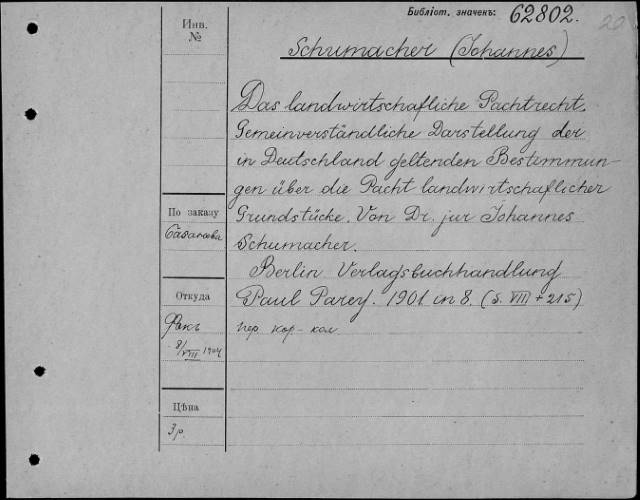 Библіот. значекъ: 62802.
20
Инв.
№
Schumacher (Johannes)
Das landwirtschafliche Pachtrecht.
Gemeinverständliche Darstellung der
in Deutschland geltenden Bestimmun-
gen über die Pacht landwirtschaflicher
По заказу
Grundstücke. Von Dr. jur Johannes
Schumacher.
Berlin Verlagsbuchhandlung
Откуда
Paul Parey. 1901. in 8. (S. VIII + 215)
пер. кор-кол
8/VIII 1904
Цѣна
3 р.